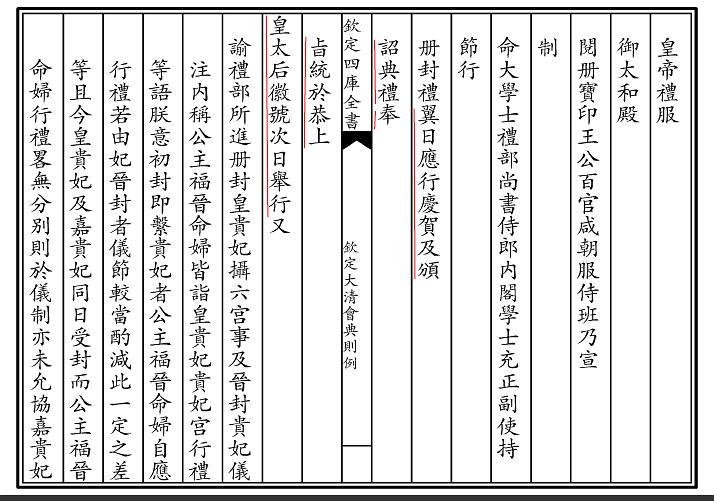 皇帝禮服
御太和殿
閱册寶印王公百官咸朝服侍班乃宣
制
命大學士禮部尚書侍郎内閣學士充正副使持
節行
册封禮翼日應行慶賀及頒
詔典禮奉
欽定四庫全書
欽定大清會典則例
旨統於恭上
皇太后徽號次日舉行又
諭禮部所進册封皇貴妃攝六宫事及晉封貴妃儀
注内稱公主福晉命婦皆詣皇貴妃貴妃宫行禮
等語朕意初封即繫貴妃者公主福晉命婦自應
行禮若由妃晉封者儀節較當酌減此一定之差
等且今皇貴妃及嘉貴妃同日受封而公主福晉
命婦行禮畧無分别則於儀制亦未允協嘉貴妃